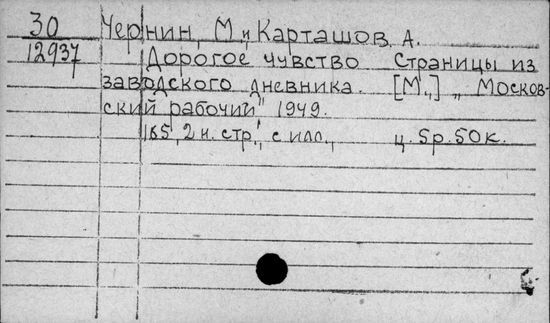 30 Чернин, М. и Карташов А.
12937 Дорогое чувство Страницы из
заводского дневника. [М.,] „Москов-
ский рабочий" 1949.
165, 2 н. стр., с илл., ц. 5р. 50к.